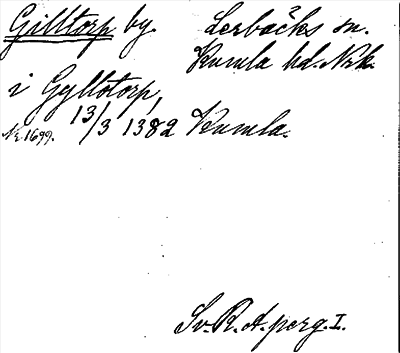 Gilltorp by. Lerbäcks sn.
Kumla hd. Nrk.
i Gyllotorp,
Nr. 1699. 13/3 1382 Kumla.
Sv. R. A. perg. I.